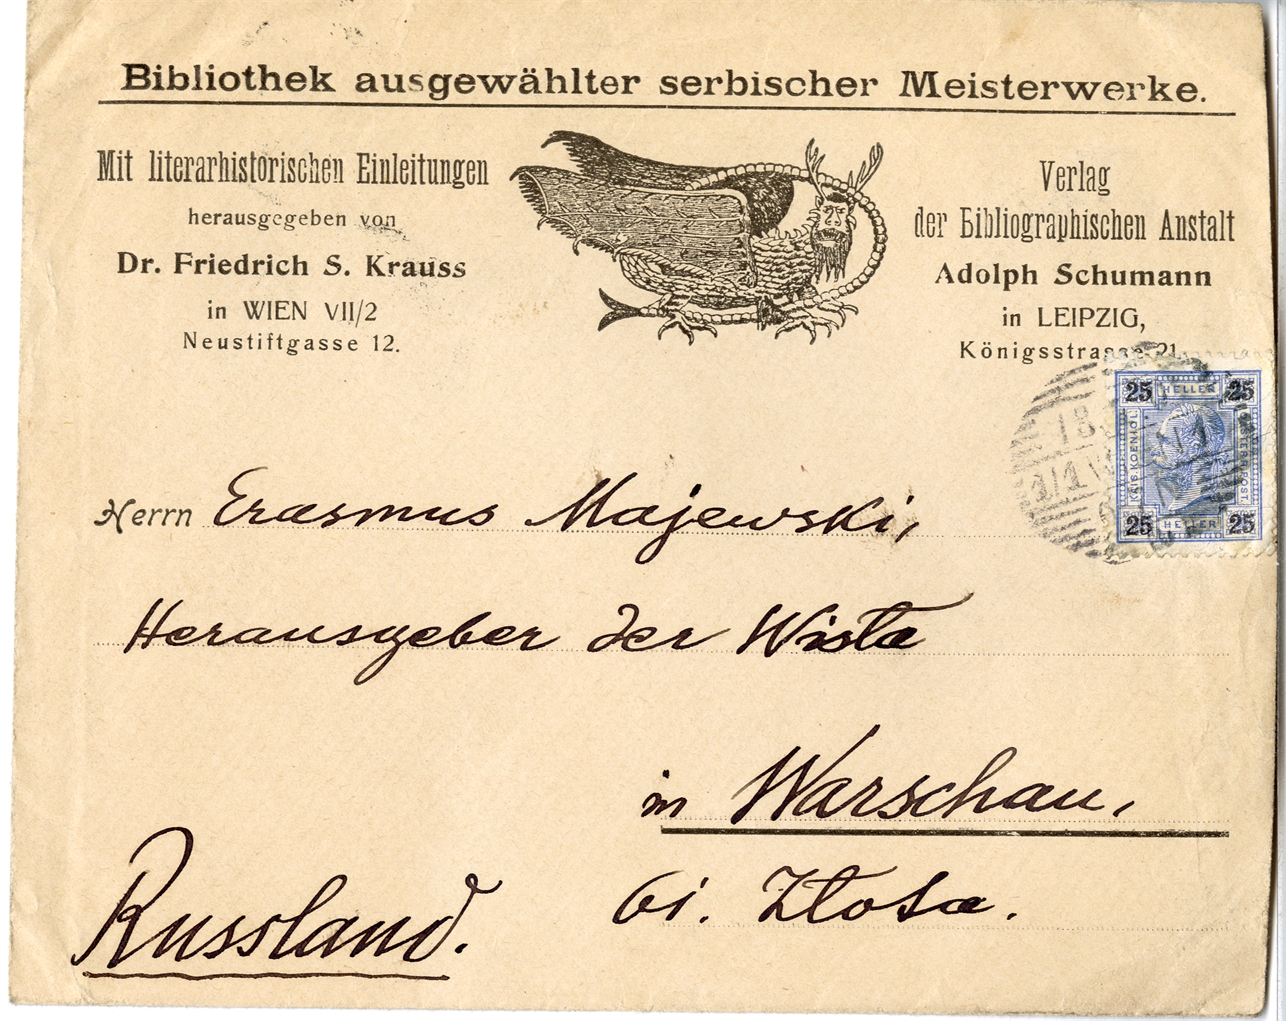 Bibliothek ausgewählter serbischer Meisterwerke.
Mit literarhistorischen Einleitungen
herausgegeben von
Dr. Friedrich S. Krauss
in WIEN VII/2
Neustiftgasse 12.
Verlag
der Bibliographischen Anstalt
Adolph Schumann
in LEIPZIG,
Königsstrasse 21.
25 HELLER 25
KAIS. KOENIGL.
OESTERR. POST
25 HELLER 25
Herrn Erasmus Majewski,
Herausgeber der Wisła
in Warschau,
Russland.
61. Złota.